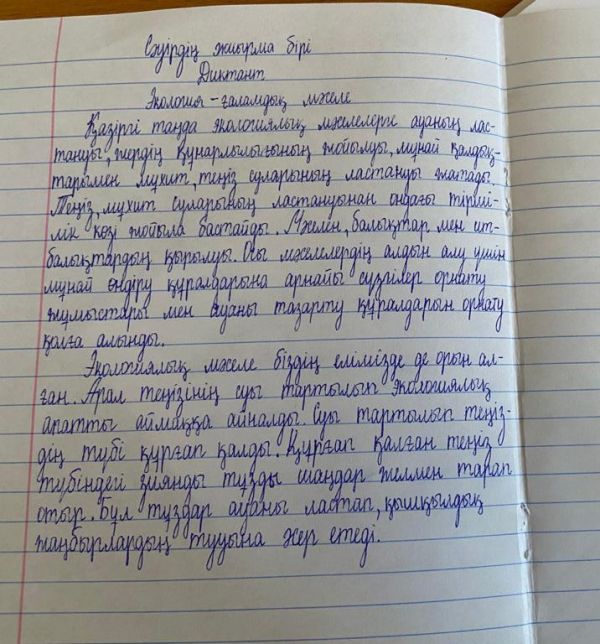 Сәуірдің жиырма бірі
Диктант
Экология-ғаламдық мәселе
Қазіргі таңда экологиялық мәселелерге ауаның лас-
тануы, жердің құнарлылығының жойылуы, мұнай қалдық-
тарымен мұхит, теңіз суларының ластануы жатады.
Теңіз, мұхит суларының ластануынан ондағы тірші-
лік көзі жойыла бастайды. Мәселен, балықтар мен ит-
балықтардың қырылуы. Осы мәселелердің алдын алу үшін
мұнай өндіру құралдарына арнайы сүзгілер орнату
жұмыстары мен ауаны тазарту құралдарын орнату
қолға алынды.
Экологиялық мәселе біздің елімізде де орын ал-
ған. Арал теңізінің суы тартылып экологиялық
апатты аймаққа айналды. Суы тартылып теңіз-
дің түбі құрғап қалды. Құрғап қалған теңіз
түбіндегі зиянды тұзды шаңдар желмен тарап
отыр. Бұл тұздар ауаны ластап, қышқылдық
жаңбырлардың тууына жер етеді.